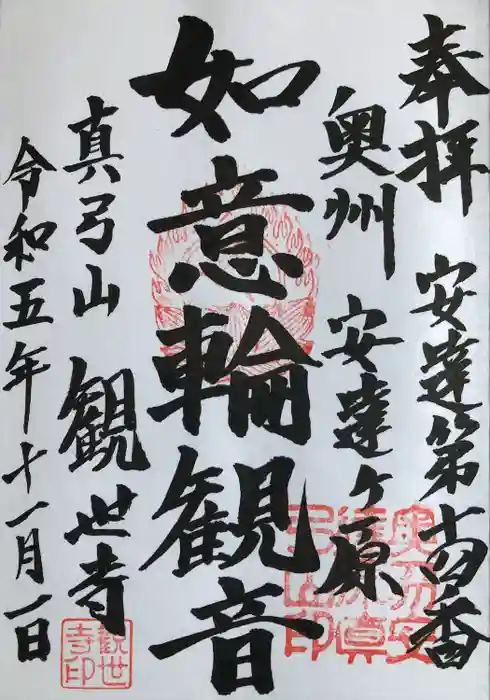 奉拝 安達第十四番
奥州 安達ヶ原
如意輪観音
真弓山 観世寺
令和五年十一月一日
奥州安達原真弓山印
観世寺印